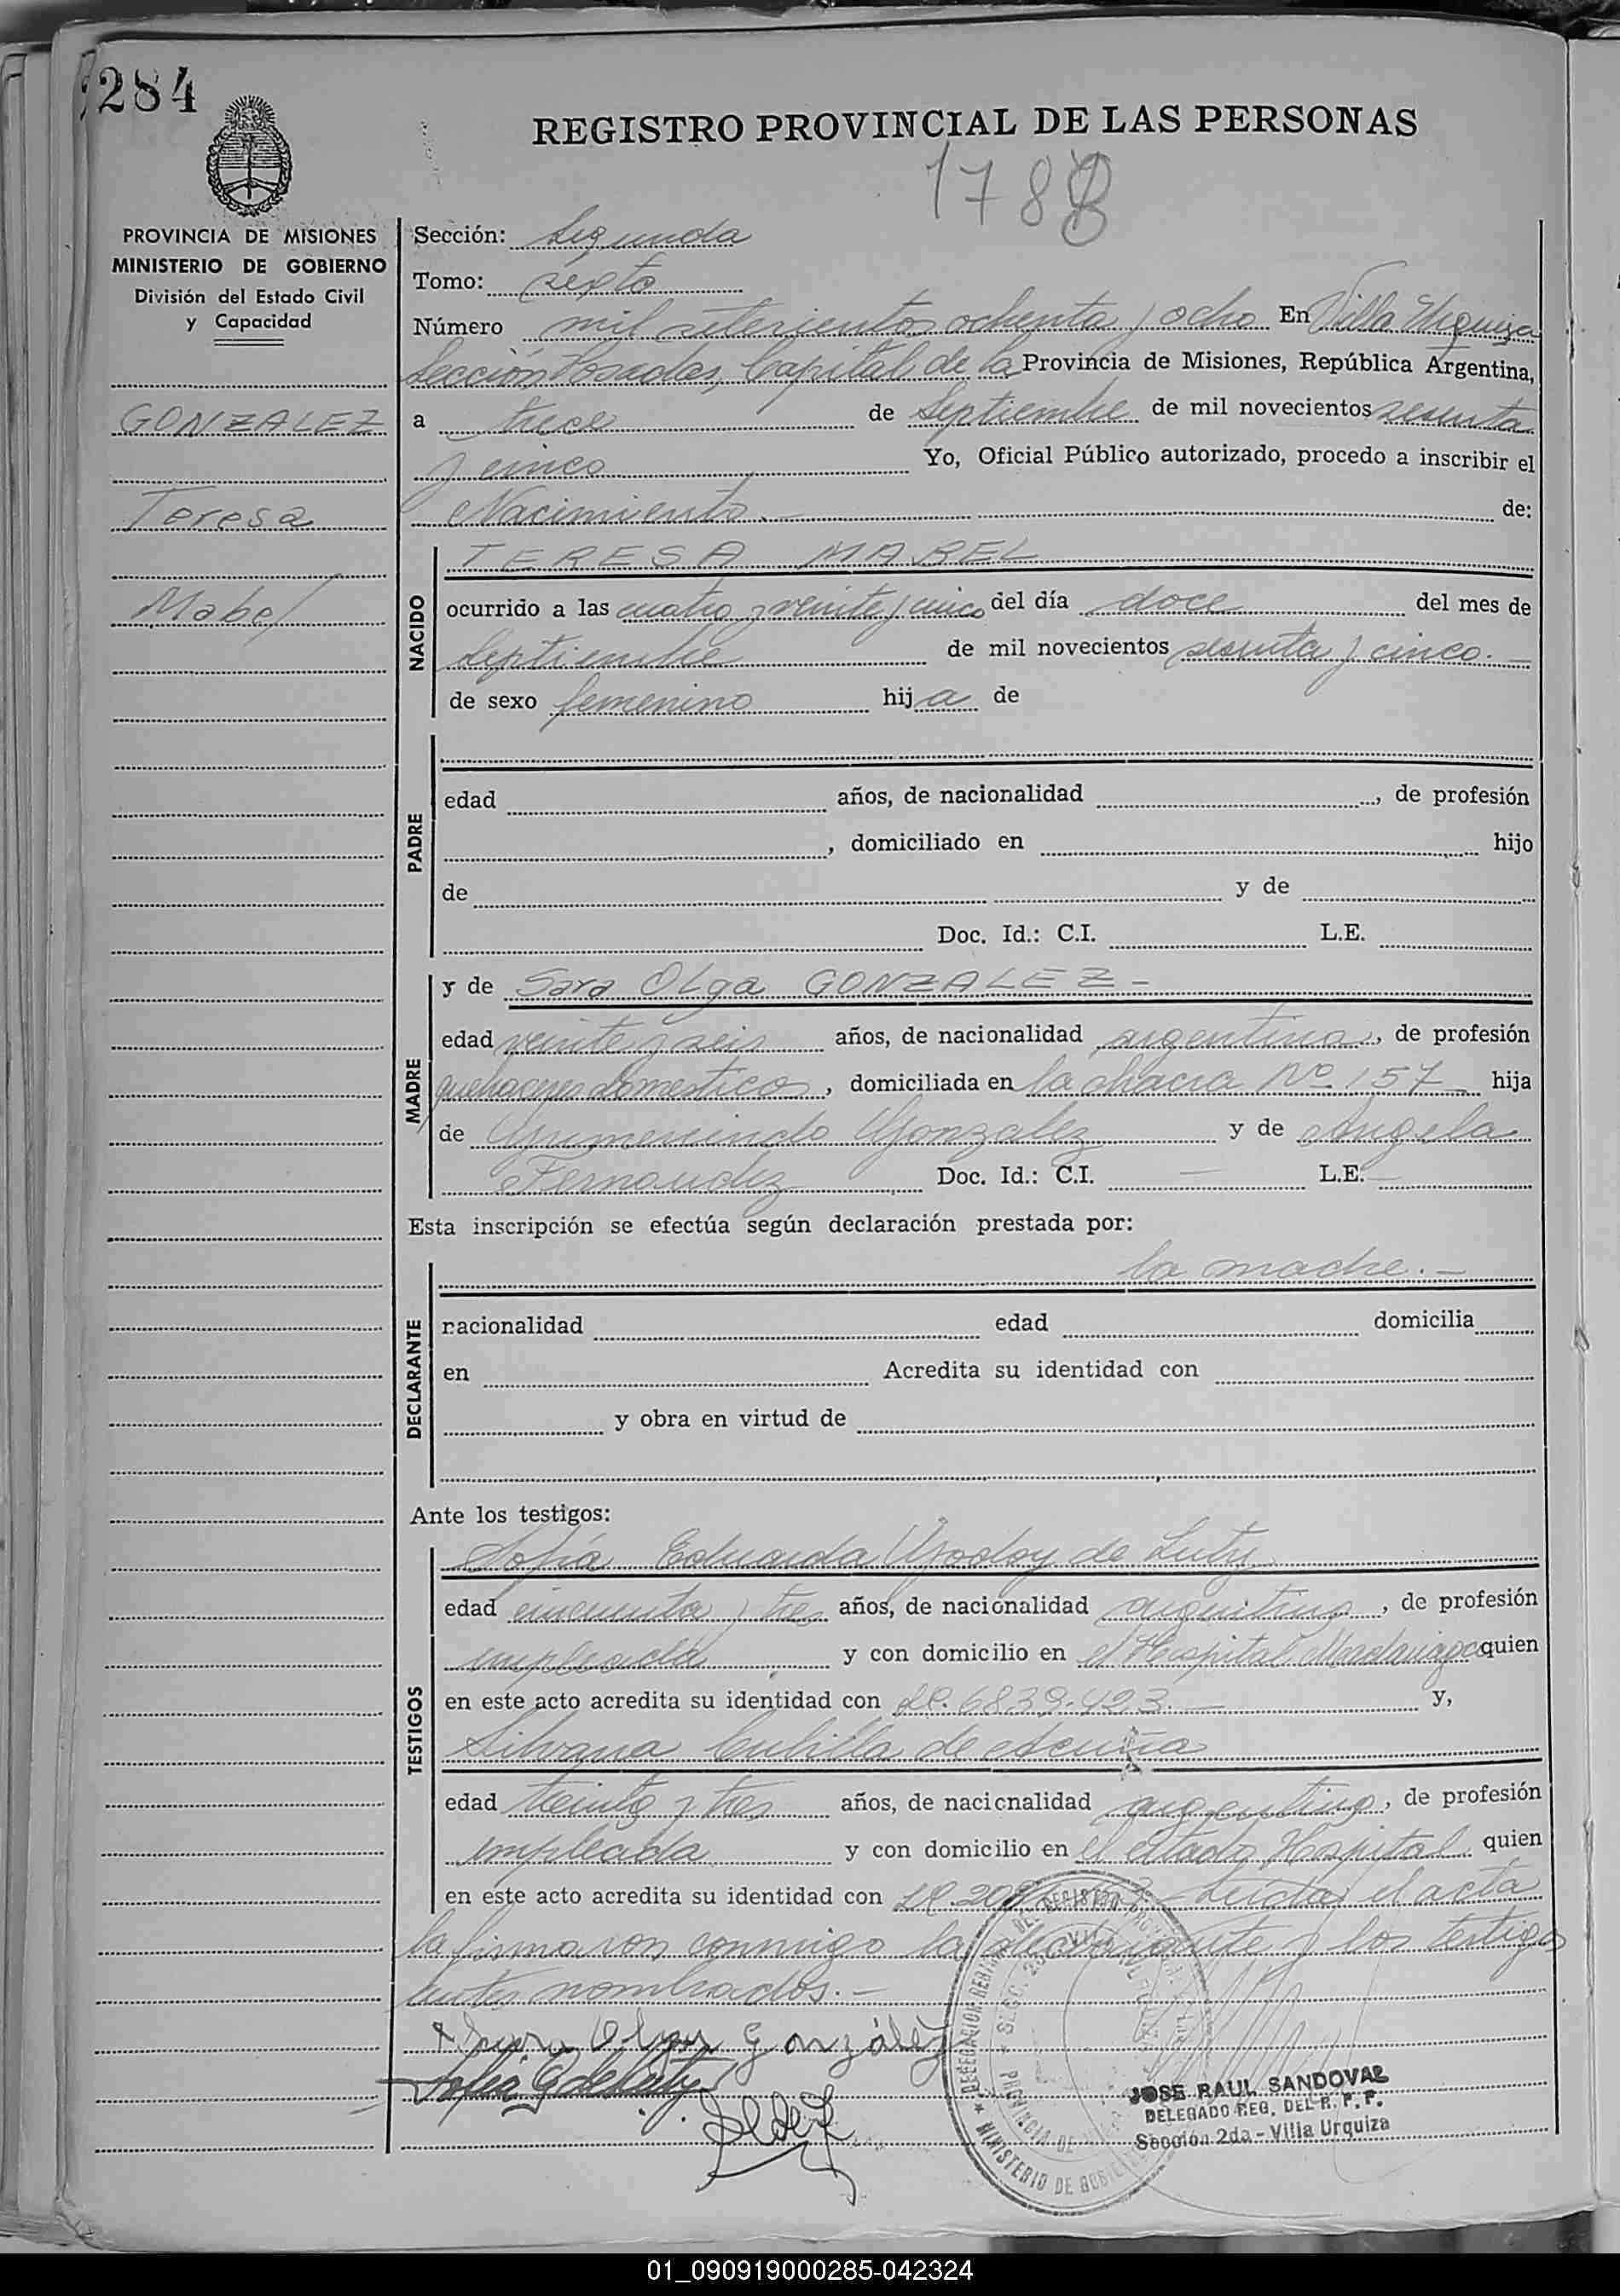 284
REGISTRO PROVINCIAL DE LAS PERSONAS
1788
PROVINCIA DE MISIONES
MINISTERIO DE GOBIERNO
División del Estado Civil
y Capacidad
GONZALEZ
Teresa
Mabel
Sección: Segunda
Tomo: sexto
Número mil setecientos ochenta y ocho En Villa Urquiza
Sección Posadas, Capital de la Provincia de Misiones, República Argentina,
a trece de Septiembre de mil novecientos sesenta
y cinco Yo, Oficial Público autorizado, procedo a inscribir el
Nacimiento.- de:
NACIDO
TERESA MABEL
ocurrido a las cuatro y veinte y cinco del día doce del mes de
Septiembre de mil novecientos sesenta y cinco.-
de sexo femenino hija de
PADRE
edad años, de nacionalidad , de profesión
, domiciliado en hijo
de y de
Doc. Id.: C.I. L.E.
MADRE
y de Sara Olga GONZALEZ-
edad veinte y seis años, de nacionalidad argentina, de profesión
quehaceres domestico, domiciliada en la chacra Nº 157 hija
de Gumercindo Gonzalez y de Angela
Fernandez Doc. Id.: C.I. — L.E. —
Esta inscripción se efectúa según declaración prestada por:
DECLARANTE
la madre.-
nacionalidad edad domicilia
en Acredita su identidad con
y obra en virtud de
Ante los testigos:
TESTIGOS
Sofía Eduarda Godoy de Luty
edad cincuenta y tres años, de nacionalidad argentina, de profesión
empleada y con domicilio en el Hospital Madariaga quien
en este acto acredita su identidad con LC. 6839.423.— y,
Silvana Cubilla de Acuña
edad treinta y tres años, de nacionalidad argentina, de profesión
empleada y con domicilio en el citado Hospital quien
en este acto acredita su identidad con LC. Leída el acta
la firmaron conmigo la declarante y los testigos
antes nombrados.-
Sara Olga González
Sofia G de Luty
JOSE RAUL SANDOVAL
DELEGADO REG. DEL R. P. P.
Sección 2da - Villa Urquiza
01_090919000285-042324